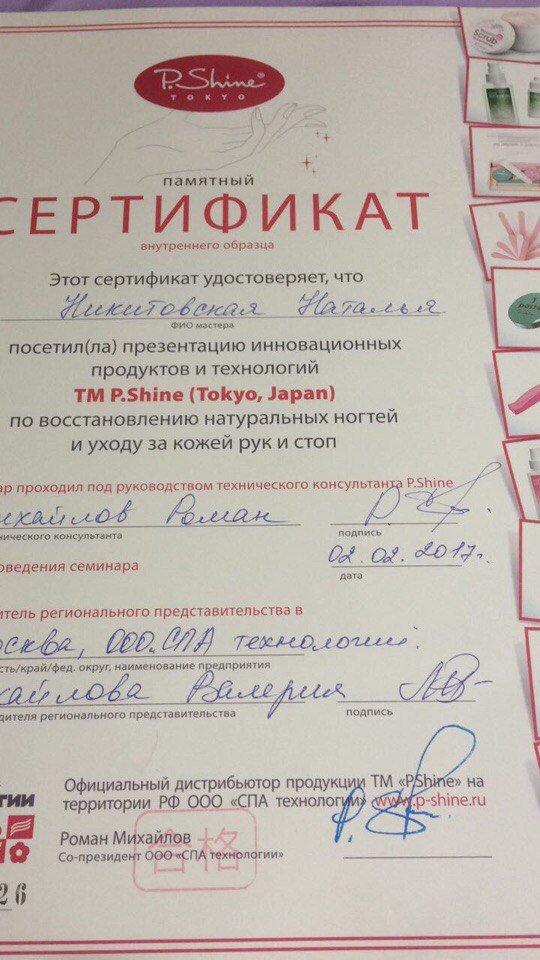 P.Shine®
TOKYO
памятный
СЕРТИФИКАТ
внутреннего образца
Этот сертификат удостоверяет, что
Никитовская Наталья
ФИО мастера
посетил(ла) презентацию инновационных
продуктов и технологий
ТМ P.Shine (Tokyo, Japan)
по восстановлению натуральных ногтей
и уходу за кожей рук и стоп
ар проходил под руководством технического консультанта P.Shine
ихайлов Роман
нического консультанта
подпись
оведения семинара
02.02.2017г.
дата
итель регионального представительства в
осква, ООО.СПА технологий.
сть/край/фед. округ, наименование предприятия
хайлова Валерия
одителя регионального представительства
подпись
Официальный дистрибьютор продукции ТМ «P.Shine» на
территории РФ ООО «СПА технологии» www.p-shine.ru
гии
Роман Михайлов
Со-президент ООО «СПА технологии»
合格
26
Scrub